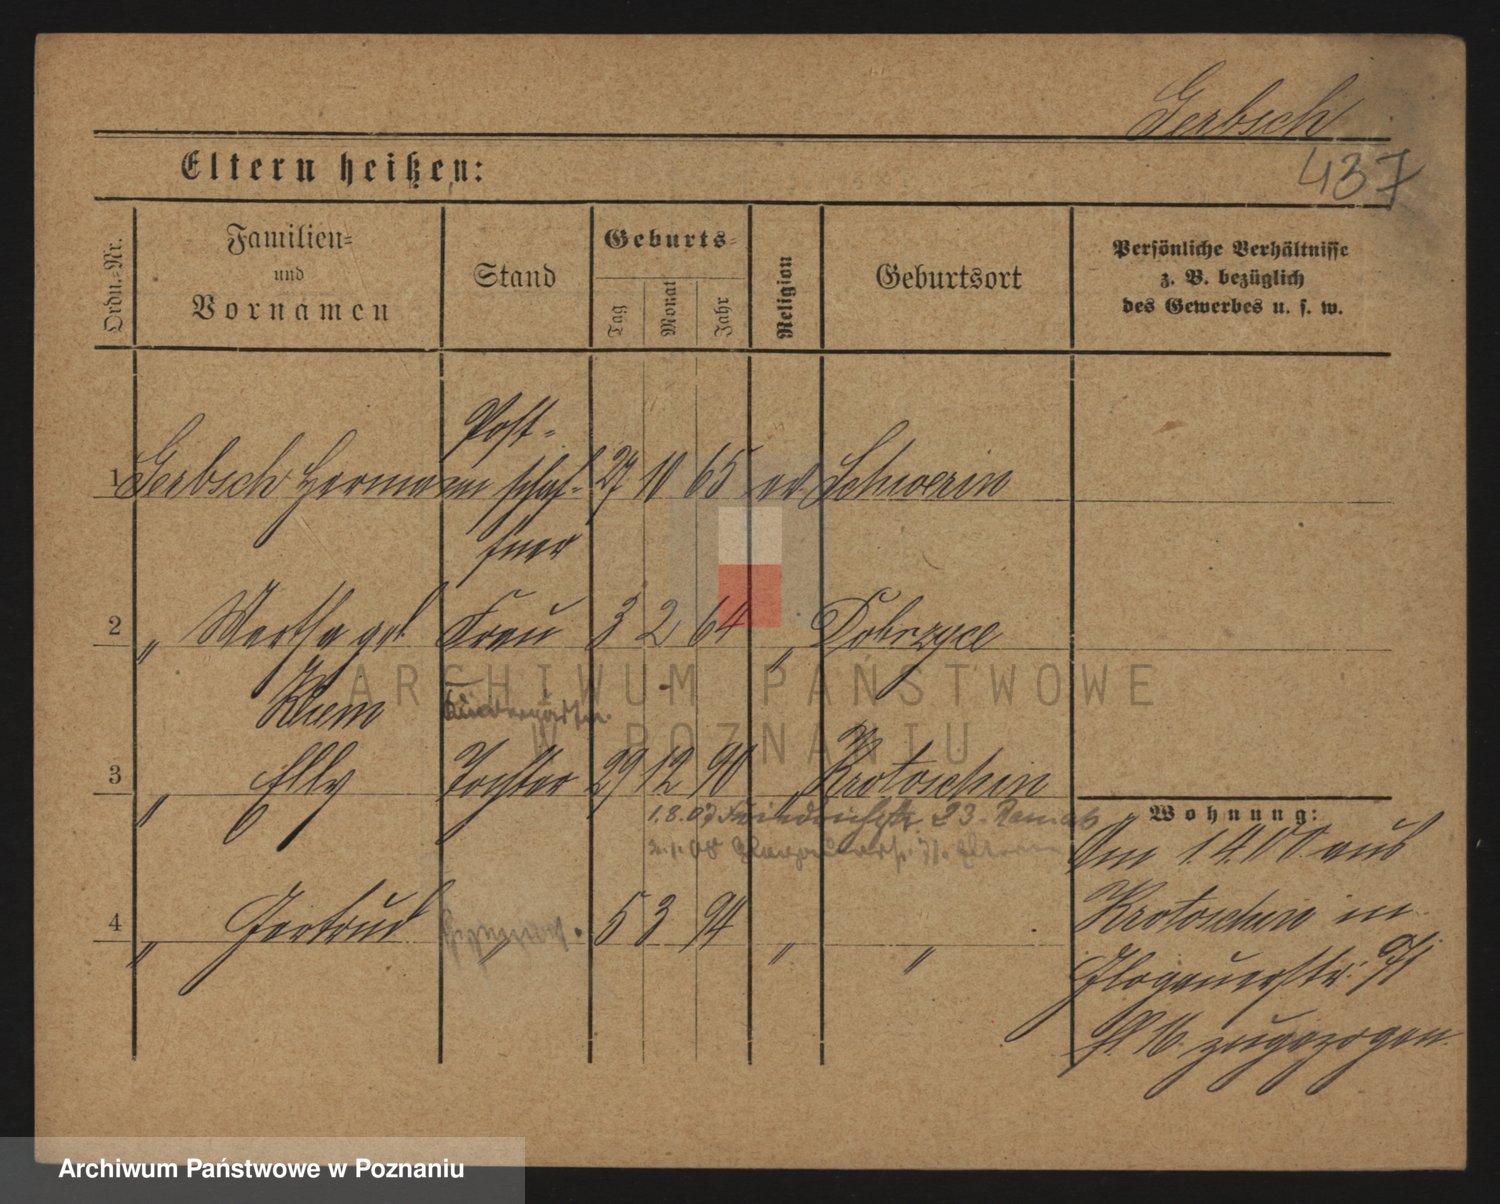 Gerbsch
437
Eltern heißen:
Ordn.-Nr.
Familien-
und
Vornamen
Stand
Geburts-
Tag
Monat
Jahr
Religion
Geburtsort
Persönliche Verhältnisse
z. B. bezüglich
des Gewerbes u. s. w.
Post-
1 Gerbsch Hermann schaf- 27 10 65 ev. Schwerin
fner
2 " Martha geb Frau 3 2 64 " Dobrzyce
3 " Elly Tochter 29 12 90 " Krotoschin
1.8.07 Friedrichstr 23.
Wohnung:
Am 1400 aus
4 " Gertrud " 5 3 94 " "
Krotoschin in
Glogauerstr. 71
zugezogen.
ARCHIWUM PAŃSTWOWE
W POZNANIU
Archiwum Państwowe w Poznaniu